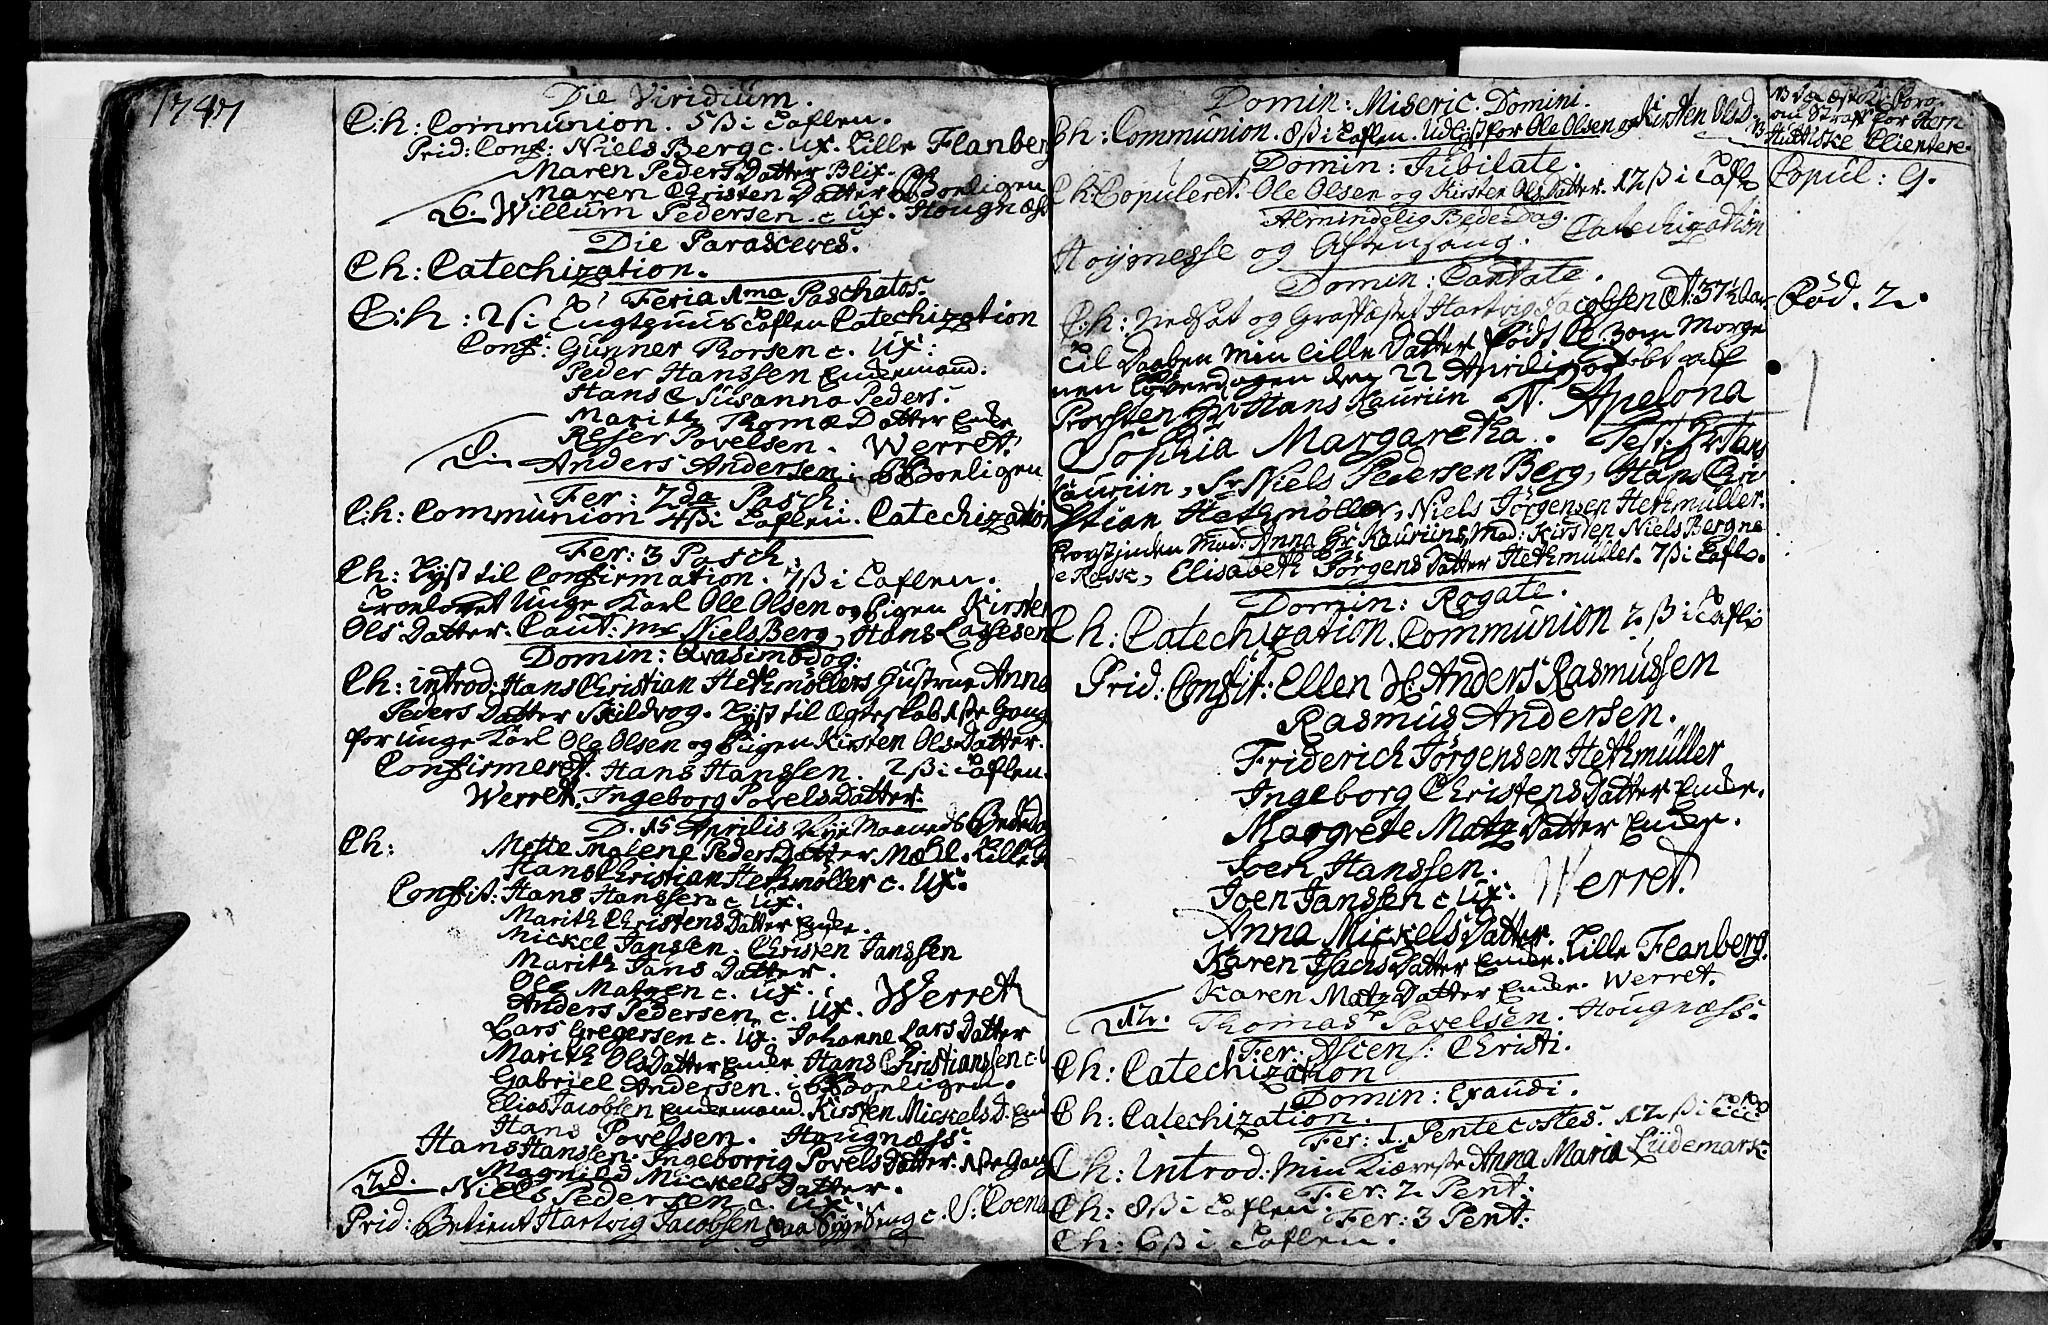 1747
Die Viridium.
C:h: Communion. 5 ß i Taflen.
Prid: Conf: Niels Berg c. Ux. Lille Flanberg
Maren Peders Datter Blix.
Maren Christen Datter
26. Willum Pedersen c Ux. Hougnæss
Die Parasceves.
Ch: Catechization.
Feria 1ma Paschatos.
C:h: 2 ß i Taflen Catechization
Conf: Gunner Thorsen c. Ux:
Peder Hanssen Enckemand.
Hans & Susanna Peders:
Marith Thomæ Datter Encke
Reser Povelsen. Werret.
Anders Andersen i Boeligen
Fer: 2da Pasch:
C:h: Communion 4 ß i Taflen. Catechization
Fer: 3 Pasch:
Ch: Lyst til Confirmation. 7 ß i Taflen.
Troelovet Unge Karl Ole Olsen og Pigen Kirsten
Ols Datter. Caut: Mr Niels Berg, Hans Lassesen
Domin: Qvasimodog:
Ch: introd: Hans Christian Hethmøllers Hustrue Anna
Peders Datter Skildvog. Lyst til Ægteskab 1ste Gang
for unge Karl Ole Olsen og Pigen Kirsten Ols Datter.
Confirmeret. Hans Hanssen. 2 ß i Taflen.
Werret. Ingeborg Povels Datter.
D. 15 Aprilis Nye Maaneds Bededag
Ch: Mette Malene Peders Datter Mæhl. Lille
Hans Christian Hethmøller c. Ux:
Confit: Hans Hanssen c Ux.
Marith Christens Datter Encke.
Mickel Janssen. Christen Janssen
Marith Jans Datter.
Ole Matzen c. Ux.
Anders Pedersen c. Ux. Werret
Lars Gregersen c. Ux. Johanne Lars Datter
Marith Ols Datter Encke. Hans Christianssen c
Gabriel Andersen. i Boeligen.
Elias Jacobsen Enckemand. Kirsten Mickels D. Enck
Hans Povelsen. Hougnæss.
Hans Hanssen. Ingeborrig Povels Datter. 1ste Gang
28. Magnild Mickels Datter.
Niels Pedersen c. Ux.
Prid: Betient Hartvig Jacobsen paa Syge Seng c. S. Coena
Domin: Miseric. Domini.
Ch: Communion. 8 ß i Taflen. Udlyst for Ole Olsen og Kirsten Ols D.
Domin: Jubilate.
Ch: Copuleret. Ole Olsen og Kirsten Ols Datter. 12 ß i Tafl
Almindelig Bede Dag.
Høymesse og Aftensang. Catechization
Domin: Cantate.
C:h: Nedsat og Graffæstet Hartvig Jacobsen Æt: 37 1/2 Aar.
Til Daaben min lille Datter Fød om Morge
nen Løverdagen den 22 Aprilis og døbt af
Provsten Hr Hans Kauriin N. Apelona
Sophia Margaretha. Test: Hr Hans
Kauriin, Sr Niels Pedersen Berg, Hans Chri
stian Hethmøller, Niels Jørgensen Hethmüller.
Provstinden Mad: Anna Hr Kauriins, Mad: Kirsten Niels Berg
Elisabeth Jørgens Datter Hethmüller. 7 ß i Tafl.
Domin: Rogate.
Ch: Catechization. Communion 2 ß i Tafl:
Prid: Confit: Ellen H. Anders Rasmussen
Rasmus Andersen.
Friderich Jørgensen Hethmüller
Ingeborg Christens Datter Encke.
Margrete Matz Datter Encke.
Joen Hanssen.
Joen Janssen c Ux: Werret.
Anna Mickels Datter.
Karen Isachs Datter Encke. Lille Flanberg.
Karen Matz Datter Encke. Werret.
12. Thomas Povelsen. Hougnæss.
Fer: Ascens: Christi.
Ch: Catechization
Domin: Exaudi.
Ch: Catechization.
Fer: 1. Pentecostes. 12 ß i Tafl
Ch: Introd: Min Kiæreste Anna Maria Lüdemark.
Fer: 2 Pent:
Ch: 8 ß i Taflen.
Fer: 3 Pent:
Ch: 6 ß i Taflen.
om Straff for Herr
Huthske Clientere.
Copul: 9.
Fød. 2.